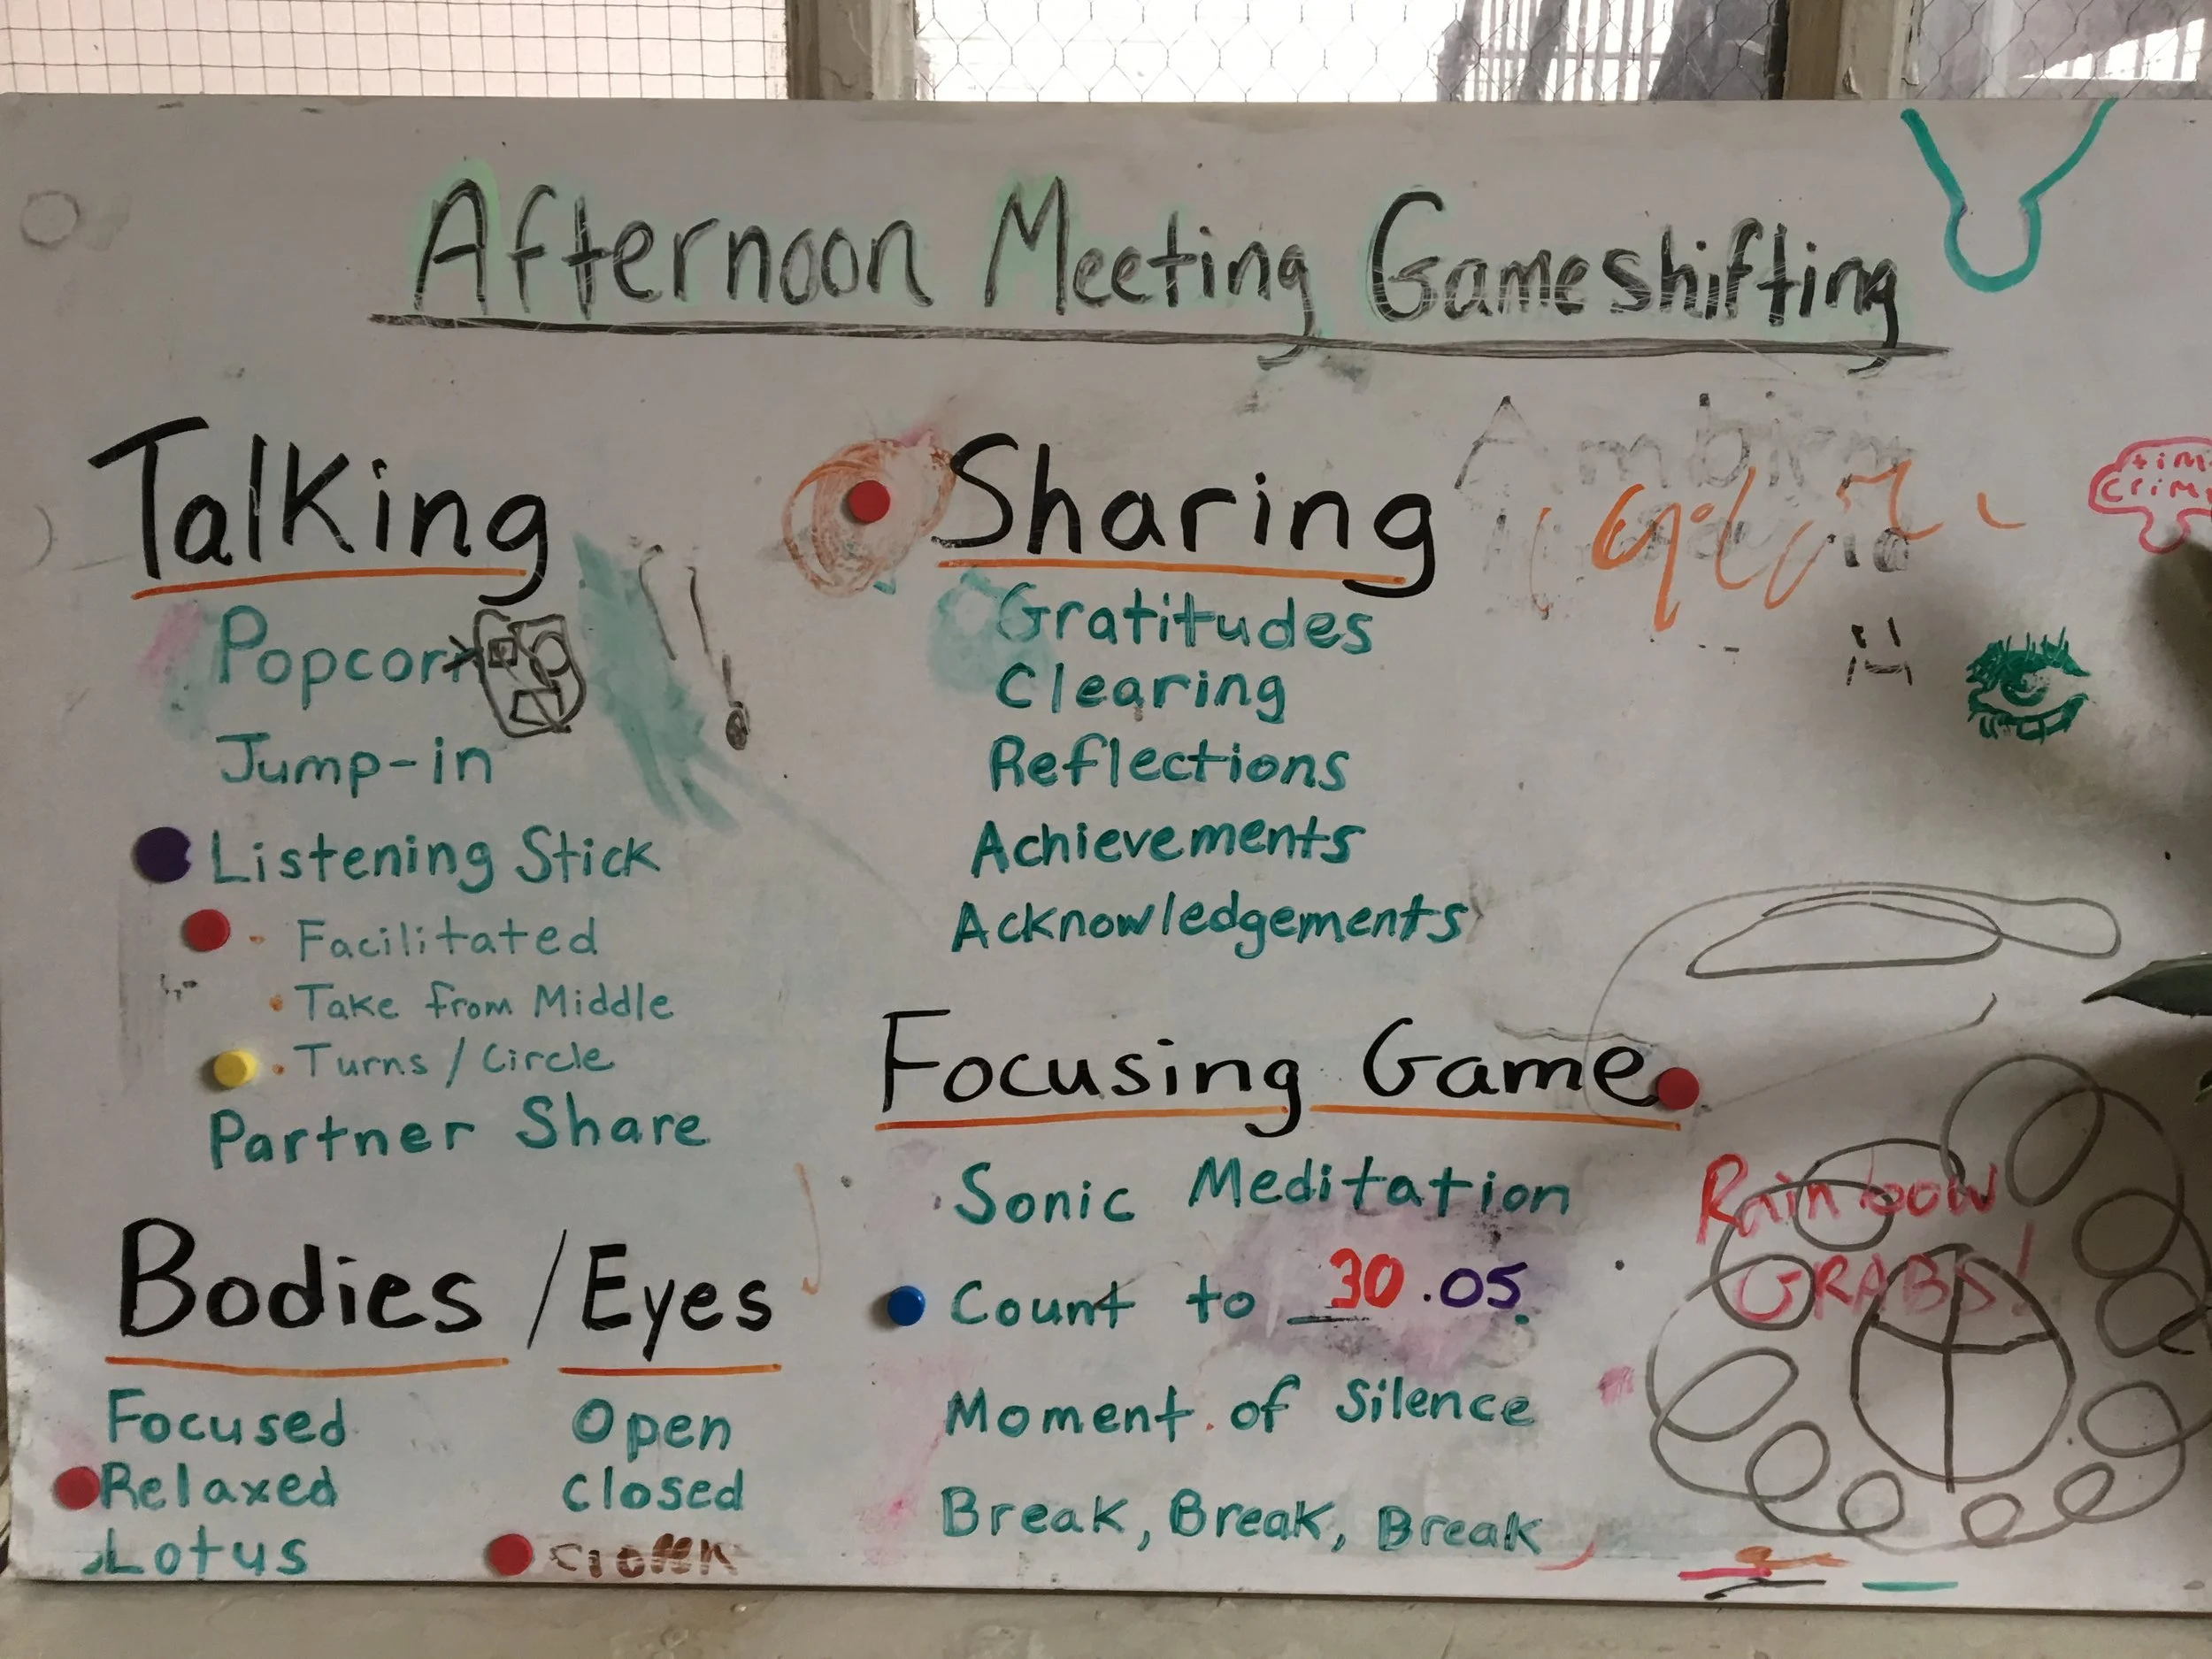 Afternoon Meeting Gameshifting
Talking
Popcorn
Jump-in
Listening Stick
· Facilitated
· Take from Middle
· Turns / Circle
Partner Share
Bodies / Eyes
Focused
Relaxed
Lotus
Open
Closed
Sharing
Gratitudes
Clearing
Reflections
Achievements
Acknowledgements
Focusing Game
Sonic Meditation
Count to 30.05.
Moment of Silence
Break, Break, Break
Rainbow
GRABS!